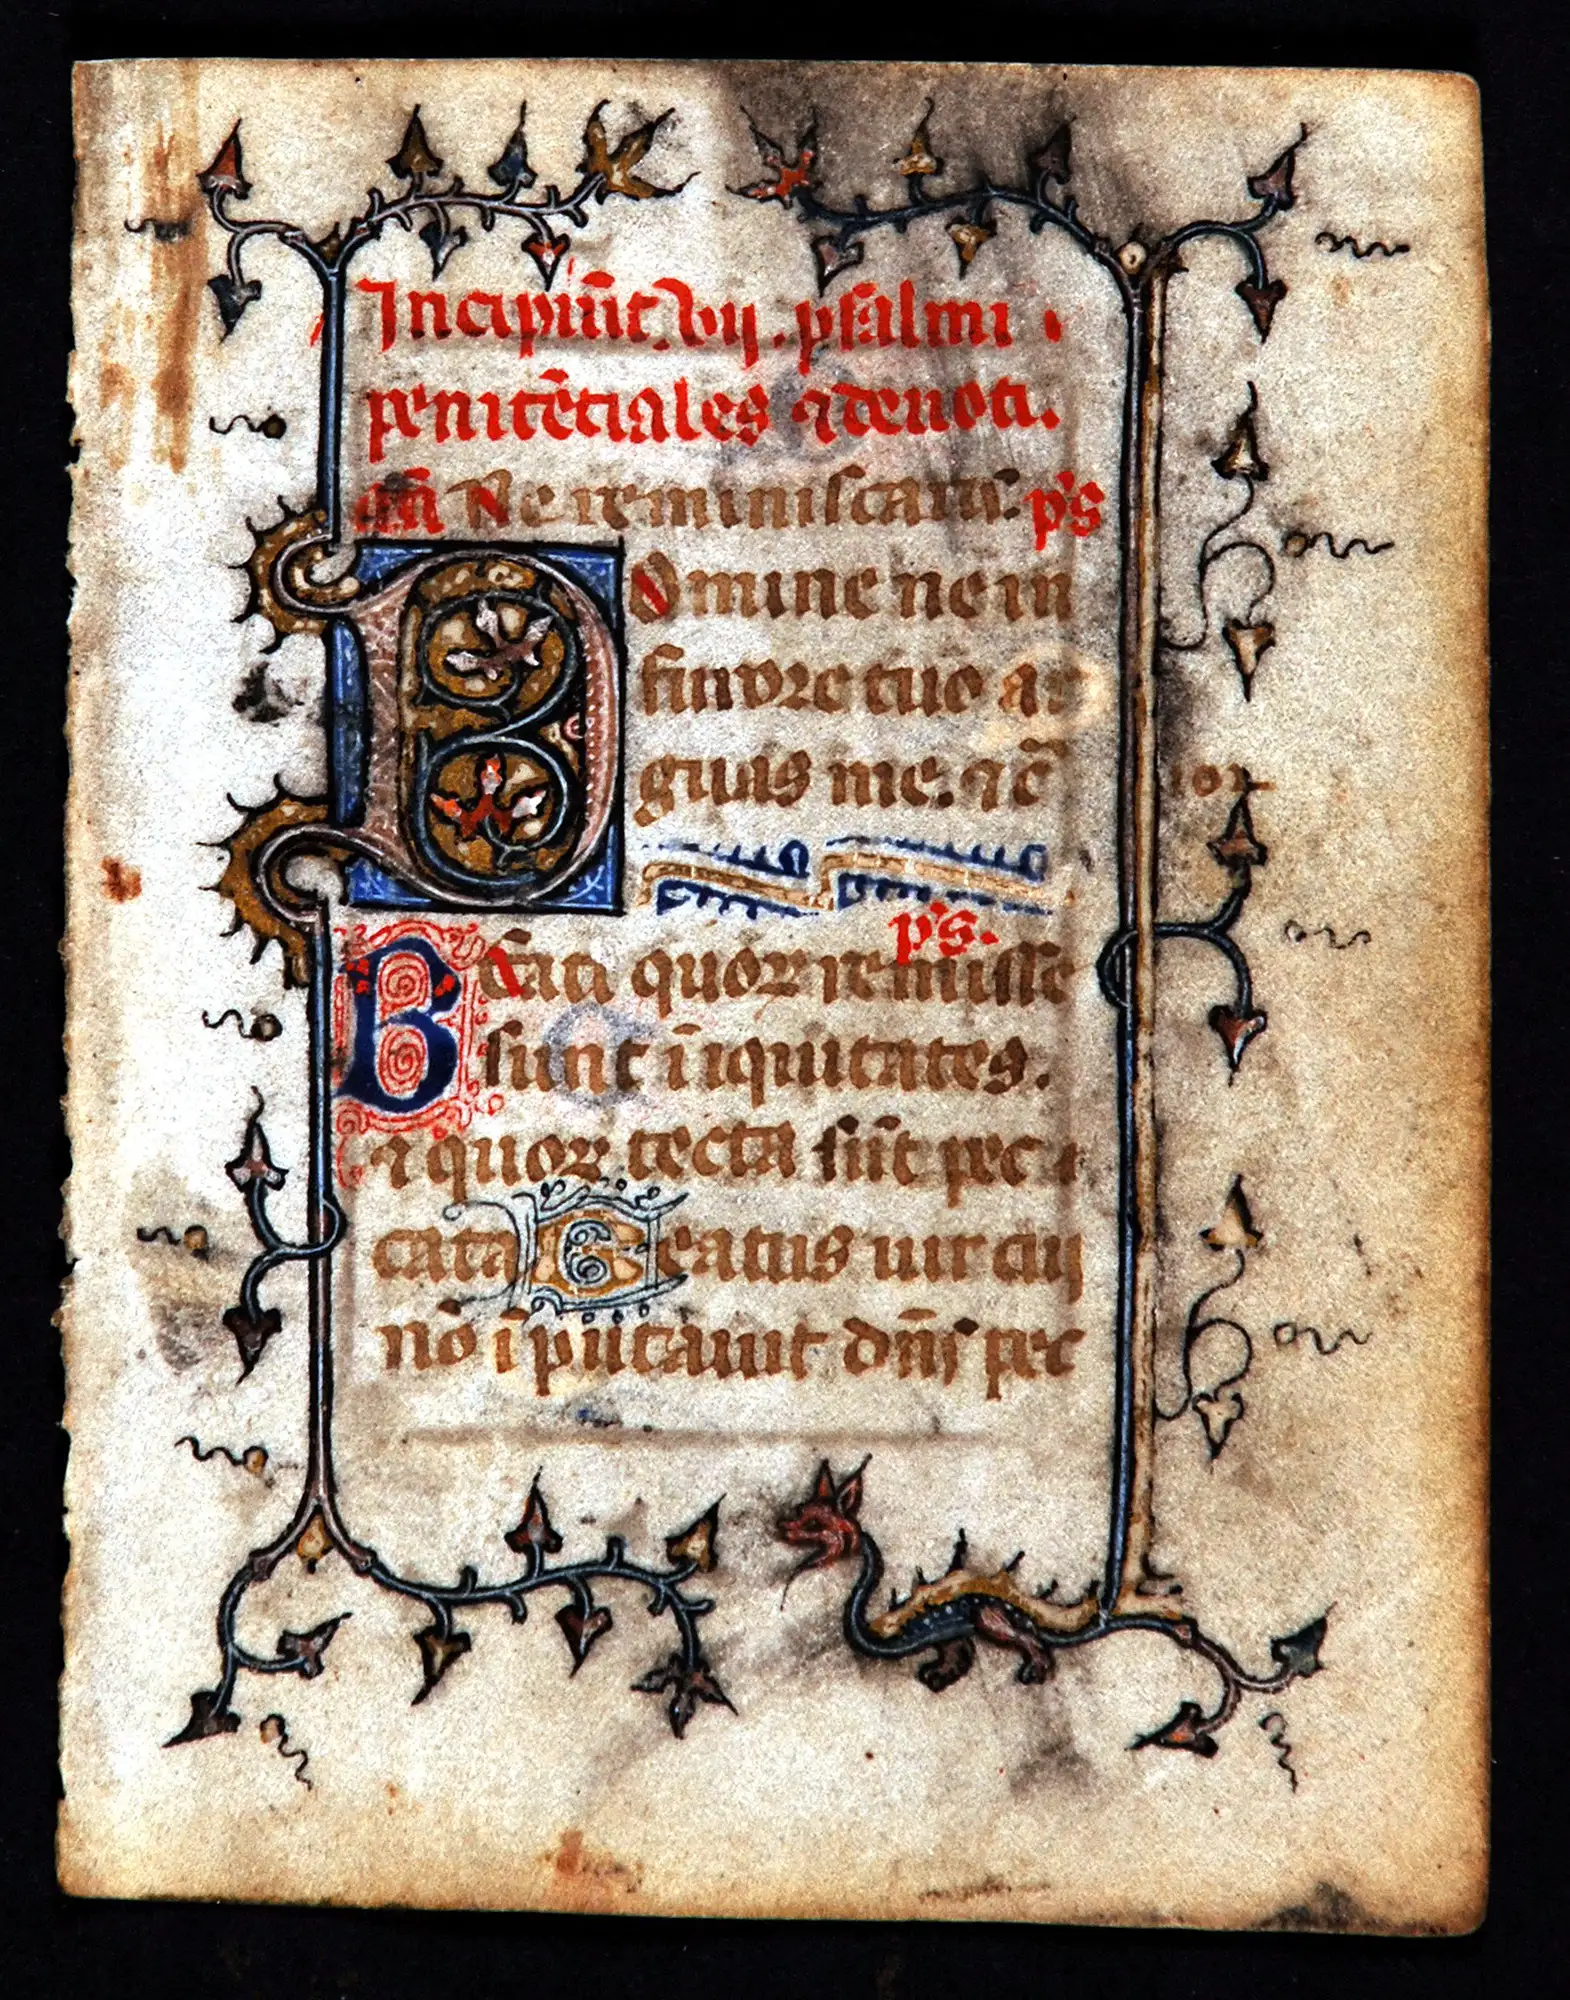 Incipiūt .vij. psalmi
penitēciales ⁊ deuoti.
an̄ Ne reminiscaris. ps
Domine ne in
furore tuo ar
guas me. ⁊ c̄
ps.
Beati quoꝝ remisse
sunt īiquitates.
⁊ quoꝝ tecta sūt pec
cata Beatus uir cui
nō īputauit dn̄s pec